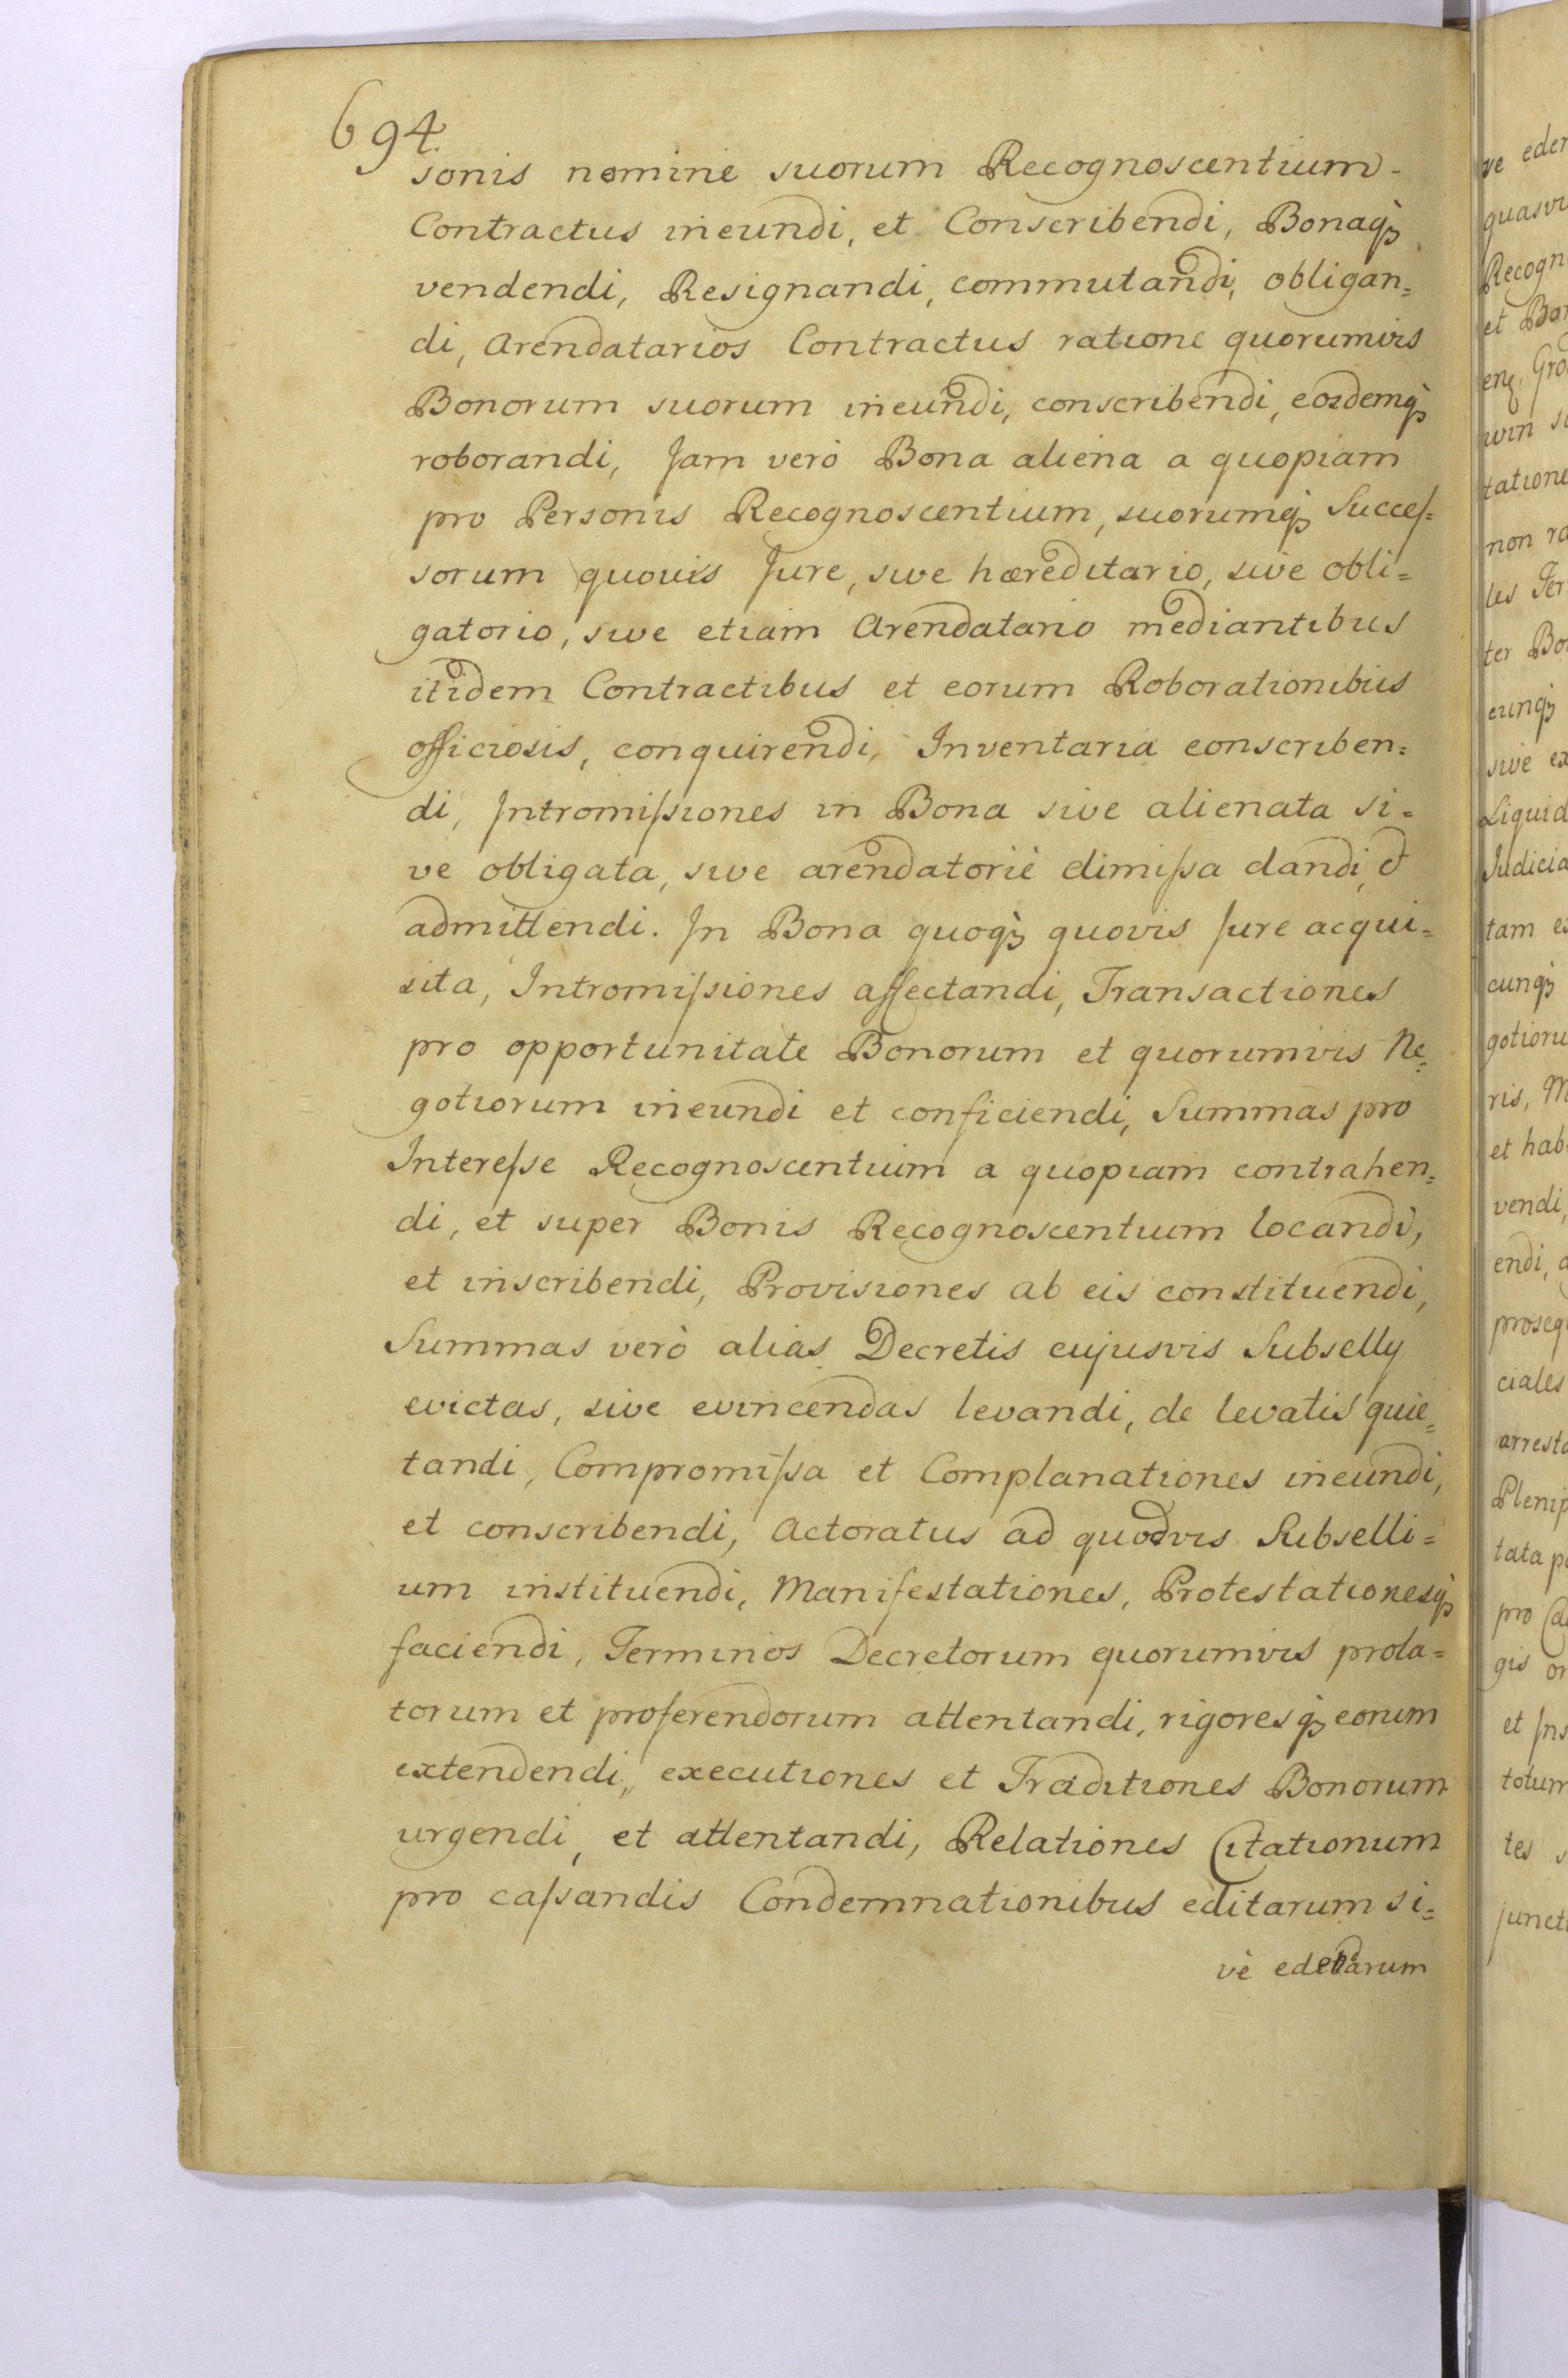 694.
sonis nomine suorum Recognoscentium
Contractus ineundi, et Conscribendi, Bonaqꝫ
vendendi, Resignandi, commutandi, obligan=
di, Arendatarios Contractus ratione quorumvis
Bonorum suorum ineundi, conscribendi, eosdemqꝫ
roborandi, Jam verò Bona aliena a quopiam
pro Personis Recognoscentium, suorumqꝫ Succeſ=
sorum quovis Jure, sive hæreditario, sive obli=
gatorio, sive etiam Arendatario mediantibus
itidem Contractibus et eorum Roborationibus
officiosis, conquirendi, Inventaria conscriben=
di, Intromiſsiones in Bona sive alienata si=
ve obligata, sive arendatoriè dimiſsa dandi, et
admittendi. In Bona quoqꝫ quovis Jure acqui=
sita, Intromiſsiones affectandi, Transactiones
pro opportunitate Bonorum et quorumvis Ne=
gotiorum ineundi et conficiendi, Summas pro
Intereſse Recognoscentium a quopiam contrahen=
di, et super Bonis Recognoscentium locandi,
et inscribendi, Provisiones ab eis constituendi,
Summas verò alias Decretis cujusvis Subselly
evictas, sive evincendas levandi, de levatis quie=
tandi, Compromiſsa et Complanationes ineundi,
et conscribendi, Actoratus ad quodvis Subselli=
um instituendi, Manifestationes, Protestationesqꝫ
faciendi, Terminos Decretorum quorumvis prola=
torum et proferendorum attentandi, rigoresqꝫ eorum
extendendi, executiones et Traditiones Bonorum
urgendi, et attentandi, Relationes Citationum
pro caſsandis Condemnationibus editarum si=
vè edendarum
ve eden
quasvi
Recogn
et Bo
enq. Gro
tatione
non ra
les Ter
ter Bo
cunqꝫ
sive ex
Liquid
Judicia
tam ex
cunqꝫ
gotioru
ris, M
et hab
vendi,
endi,
proseq
ciales
arresta
Plenip
tata p
pro Ca
gis or
et Ins
totum
tes s
juncti